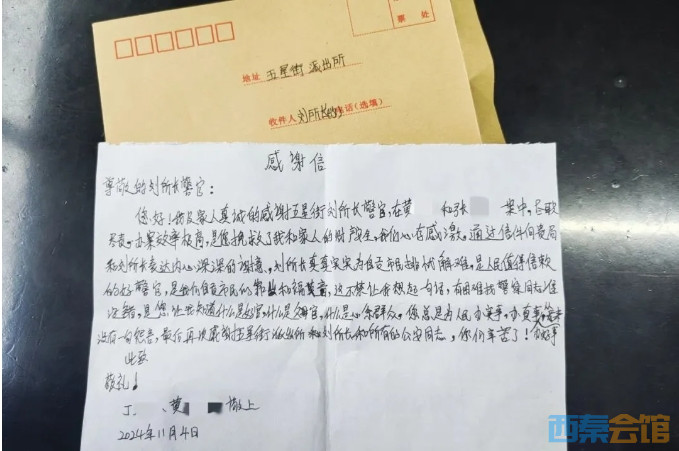 票 处
地址 五星街 派出所
收件人 刘所长 电话(选填)
感谢信
尊敬的刘所长警官:
您好!我及家人真诚的感谢五星街刘所长警官,在黄 和张 案中,尽职
尽责,办案效率极高,是您挽救了我和家人的财产,我们心存感激,通过信件向贵局
和刘所长表达内心深深的谢意,刘所长真真实实为自己市民排忧解难,是人民值得信赖
的好警官,是我们自己市民的 和福 ,这不禁让我想起一句话,有困难找警察同志!在
这路,是您让我知道什么是好官,什么是好官,什么是心系群众,您总是为人民办实事,办真事,
没有一句怨言,最后再次感谢五星街派出所和刘所长和所有的公安同志,你们辛苦了!
此致
敬礼!
丁 、黄 敬上
2024年11月4日
西秦会馆